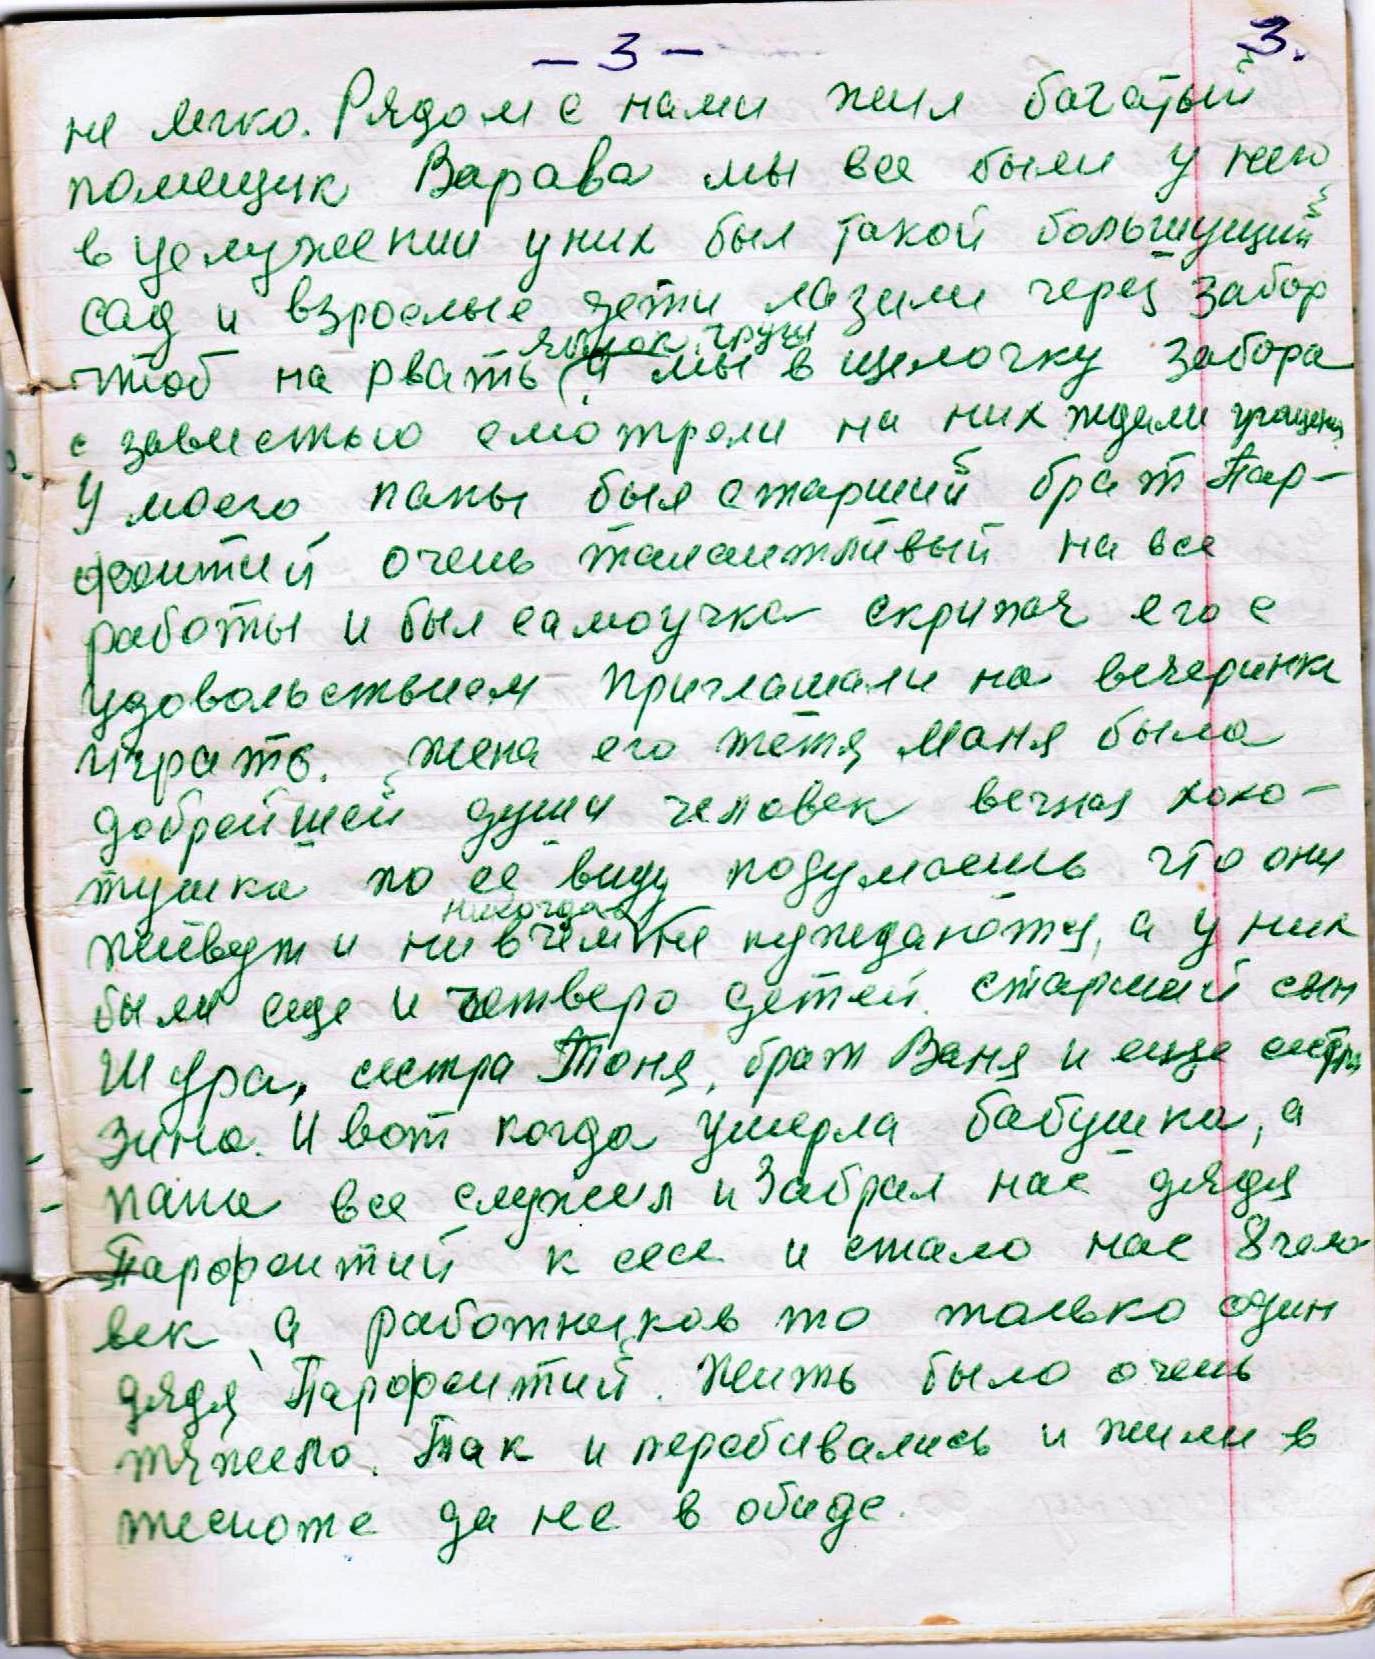 – 3 – 3.
не легко. Рядом с нами жил богатый
помещик Варава мы все были у него
в услужении у них был такой большущий
сад и взрослые дети лазили через забор
яблок, груш
чтоб на рвать, и мы в щелочку забора
с завистью смотрели на них ждали угощения
У моего папы был старший брат Пар-
фентий очень талантливый на все
работы и был самоучка скрипач его с
удовольствием приглашали на вечеринки
играть. жена его тётя Маня была
добрейшей души человек вечная хохо-
тушка по её виду подумаешь что они
никогда
живут и ни в чем не нуждаются, а у них
были еще и четверо детей. старший сын
Шура, сестра Тоня, брат Ваня и еще сестра
Зина. И вот когда умерла бабушка, а
папа все служил и забрал нас дядя
Парфентий к себе и стало нас 8 чело
век, а работников то только один
дядя Парфентий. Жить было очень
тяжело. Так и перебивались и жили в
тесноте да не в обиде.